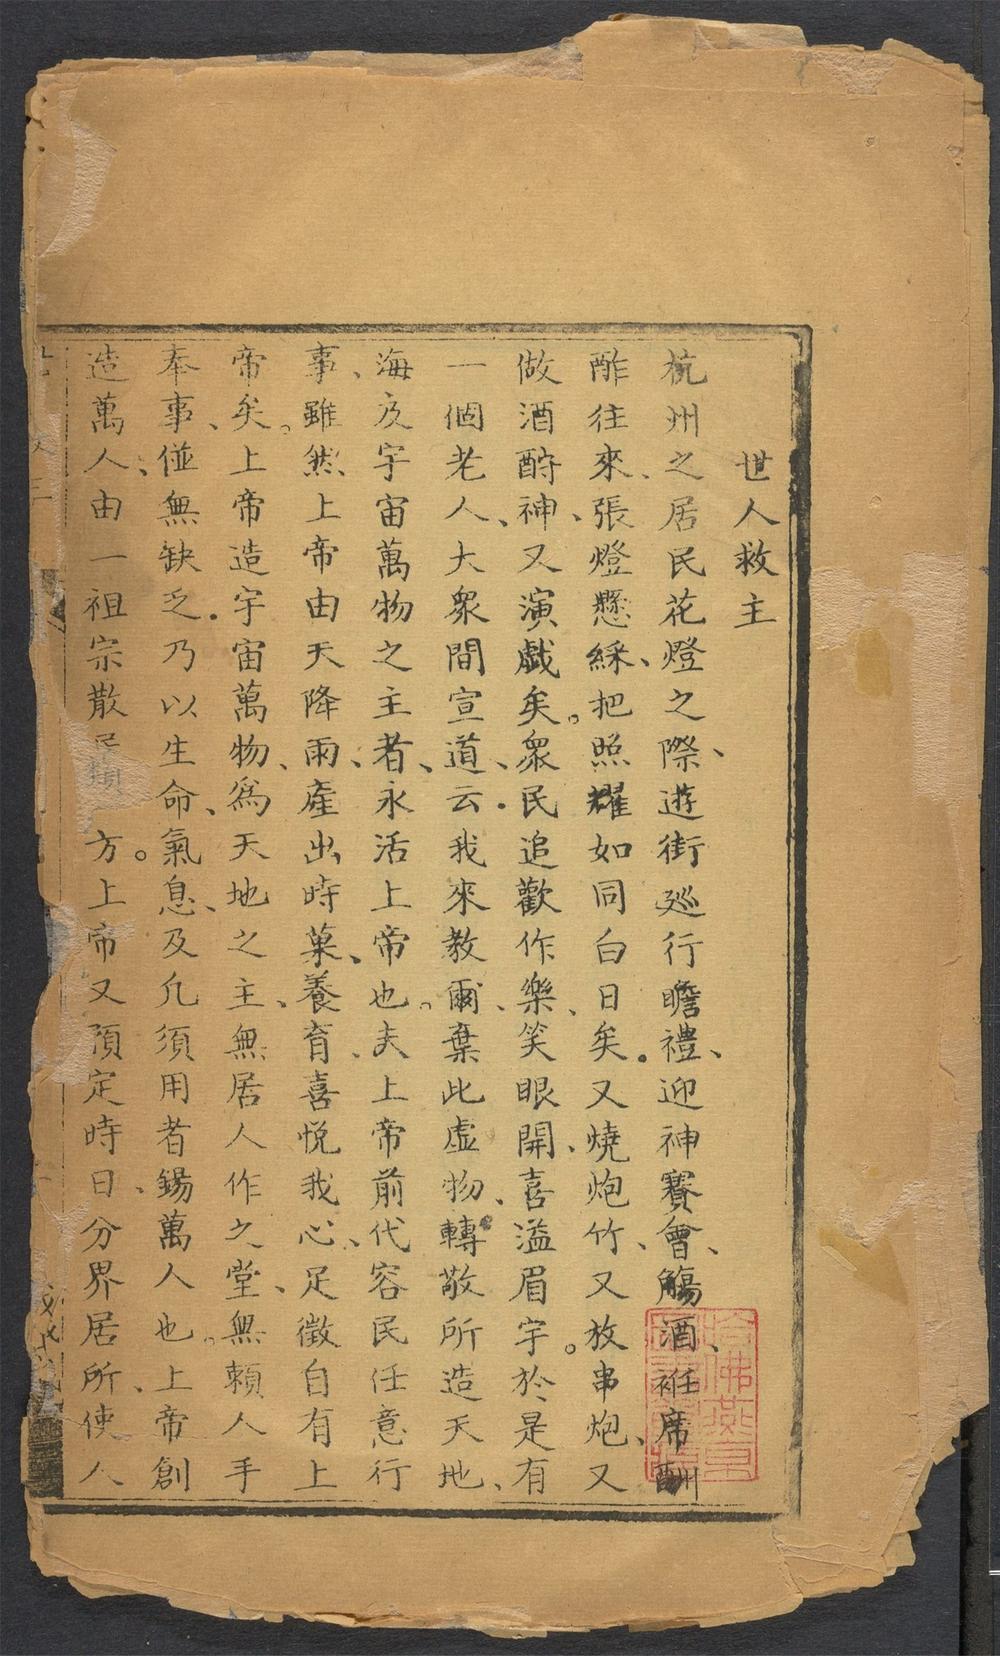 世人救主
杭州之居民花燈之際、遊街廵行瞻禮、迎神賽會、觴酒、袵席酬
酢往來、張燈懸綵、把照耀如同白日矣。又燒炮竹、又放串炮、又
做酒酧神、又演戱矣。衆民追歡作樂、笑眼開、喜溢眉宇。於是有
一個老人、大衆間宣道、云。我來教爾、棄此虛物、轉敬所造天地、
海及宇宙萬物之主者、永活上帝也。夫上帝前代容民任意行
事、雖然上帝由天降雨、產出時菓、養育、喜悅我心、足徵自有上
帝矣。上帝造宇宙萬物、爲天地之主、無居人作之堂、無賴人手
奉事、並無缺乏。乃以生命、氣息、及凡須用者錫萬人也。上帝創
造萬人、由一祖宗散居 方。上帝又預定時日、分界居所、使人
哈佛燕京